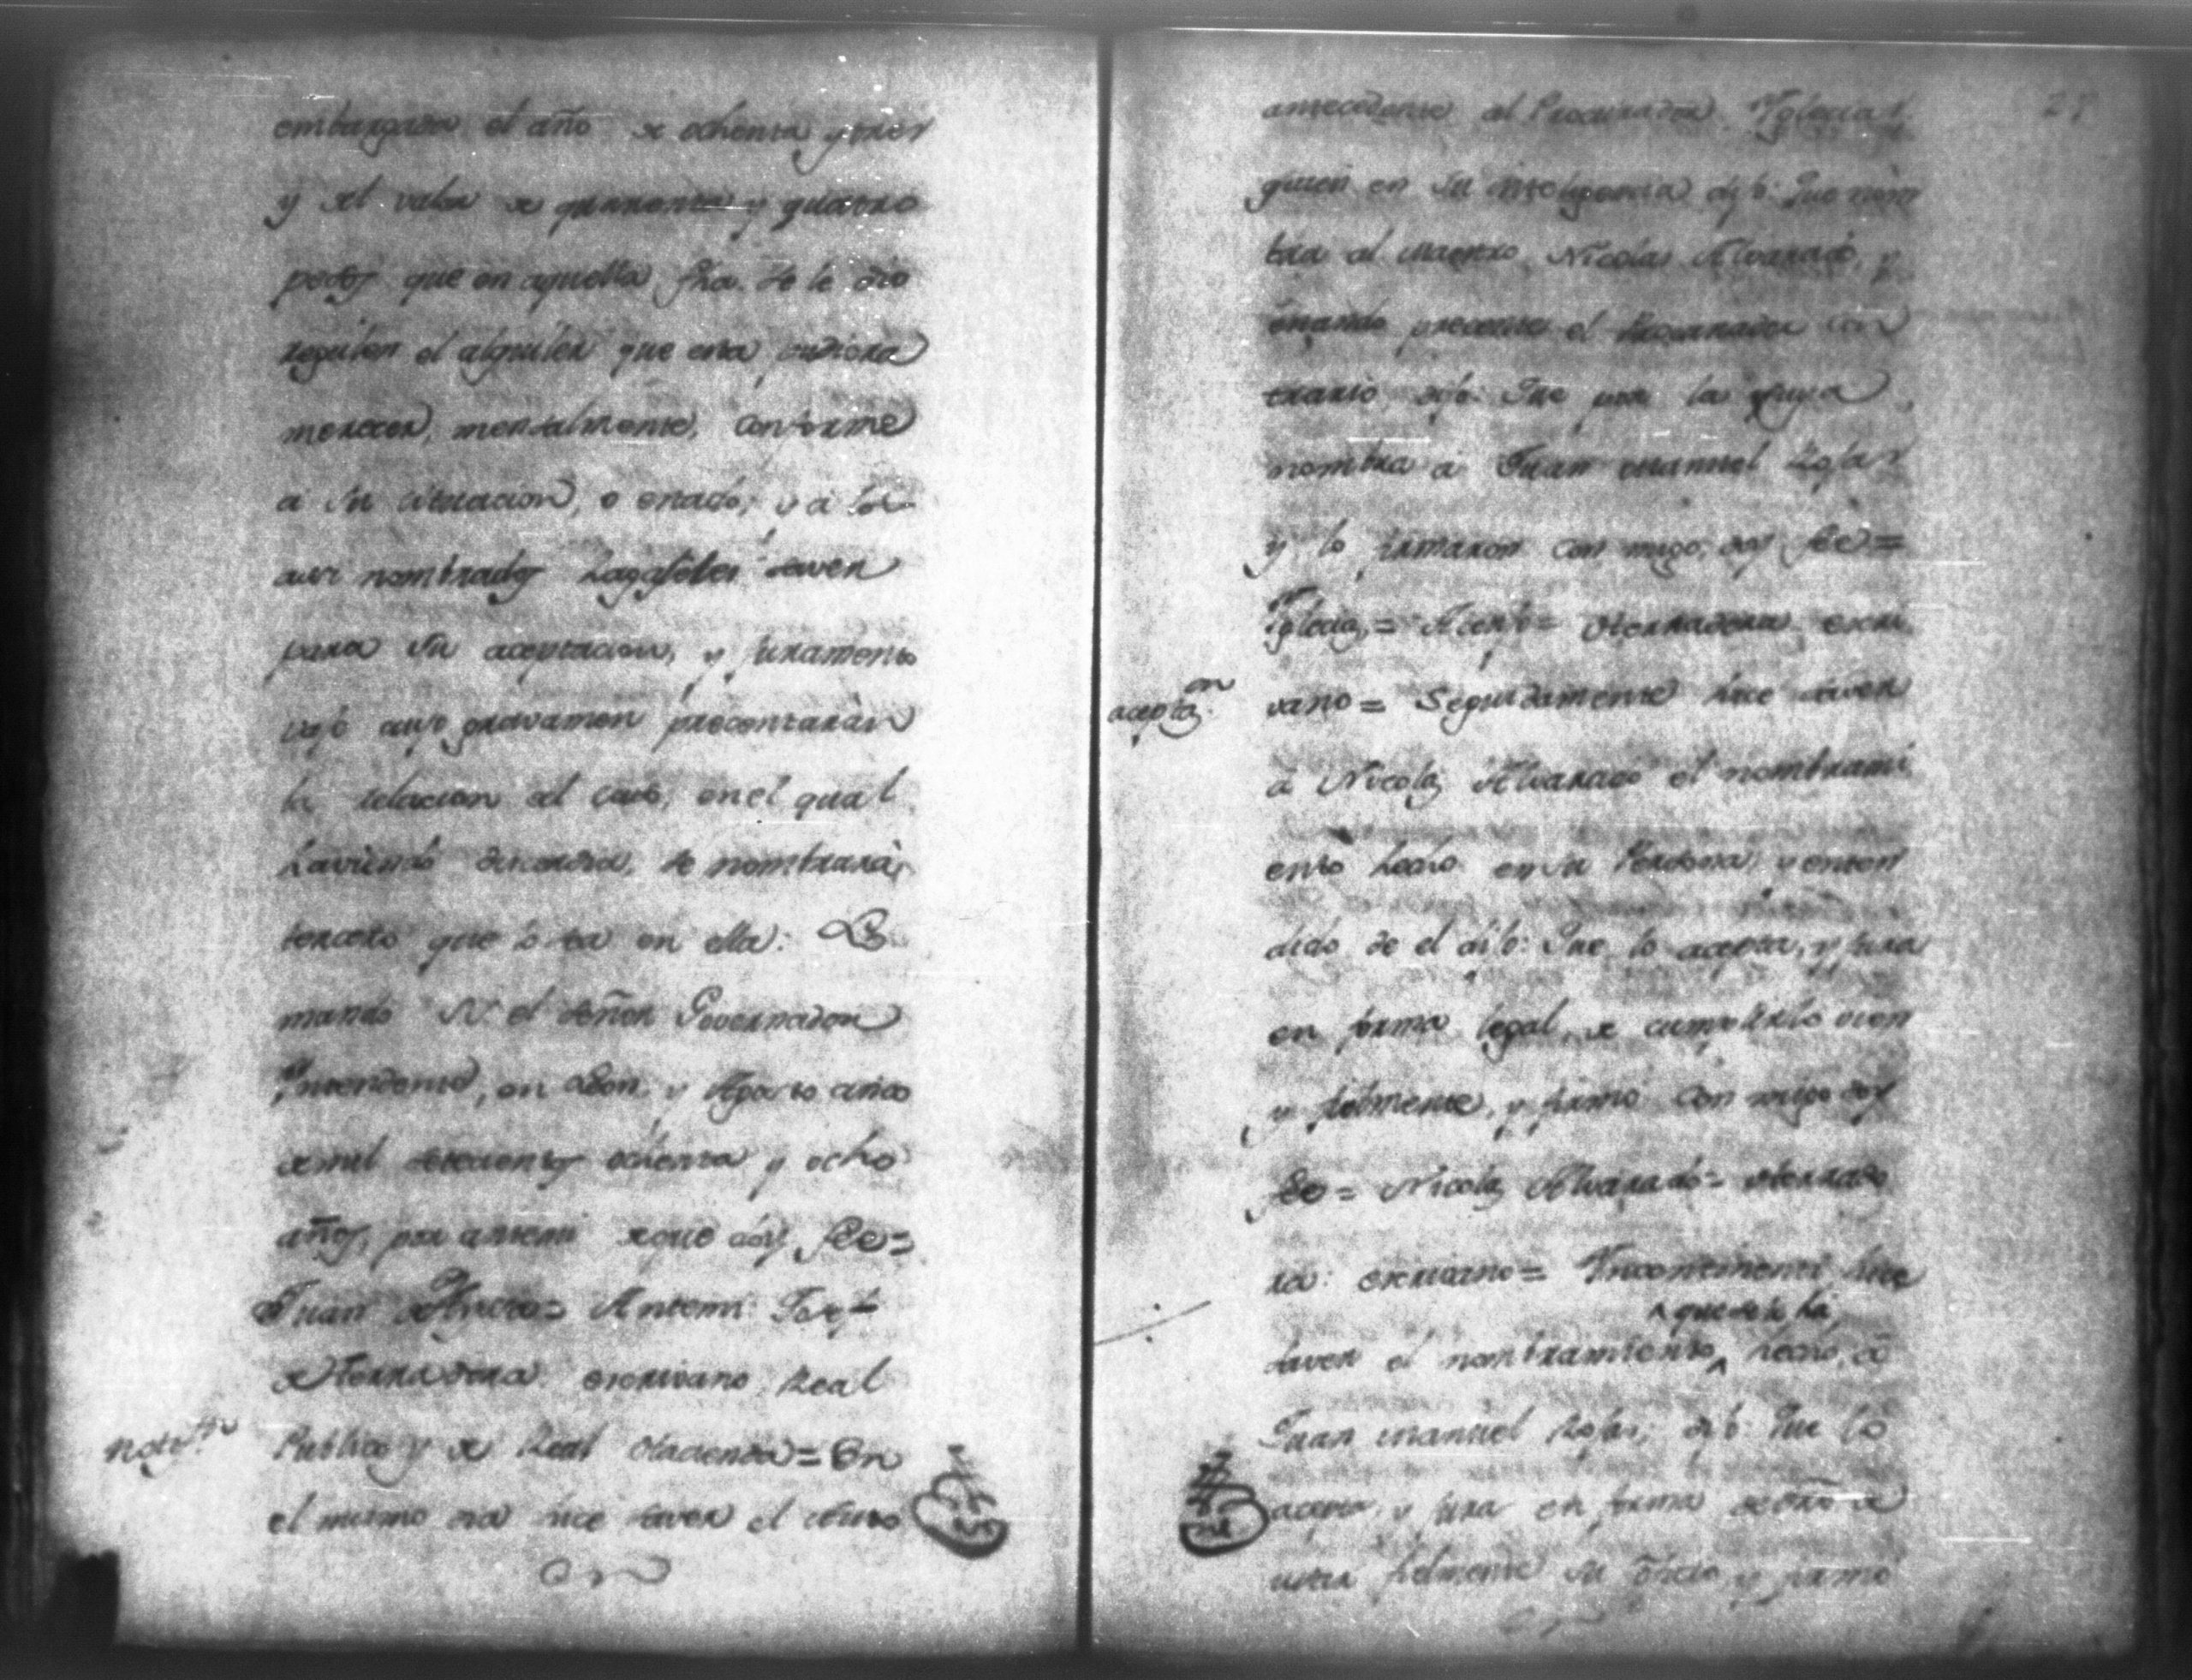 embargada el año de ochenta y tres
y del valor de quarenta y quatro
pesos que en aquella fha. se le dio
regulen el alquiler que esta pudiera
merecer, mensalmente, conforme
a su cituacion, o estado; y a los
assi nombrados hagaseles saver
para su aceptacion, y juramento
vajo cuyo gravamen precentaràn
la relacion del caso, en el qual
haviendo discordia, se nombrarà
tercero que lo sea en ella: Lo
mando SS. el señor Governador
Yntendente, en Leon, y Agosto cinco
de mil setecientos ochenta y ocho
años, por antemi de que doy fee=
Juan de Ayssa= Antemi:
de Herradora escrivano Real
Publico y de Real Hacienda= En
notifon
el mismo dia hice saver el auto
antecedente al Procurador Yglecias
quien en su inteligencia dijo: Que nom
bra al Maestro Nicolas Alvarado, y
estando precente el Procurador con
trario, dijo: Que por la suya
nombra à Juan Manuel Rojas
y lo firmaron con migo, doy fee=
Yglecias= = Herradora escri
aceptaon
vano= Seguidamente hice saver
à Nicolas Alvarado el nombrami
ento hecho en su Persona, y enten
dido de el dijo: Que lo acepta, y jura
en forma legal, de cumplirlo vien
y fielmente, y firmó con migo doy
fee= Nicolas Alvarado= Herrado
ra: escrivano= Yncontinenti hice
que se le ha
saver el nombramiento hecho, à
Juan Manuel Rojas; dijo: Que lo
acepta, y jura en forma de dro. de
usar fielmente su oficio y firmó